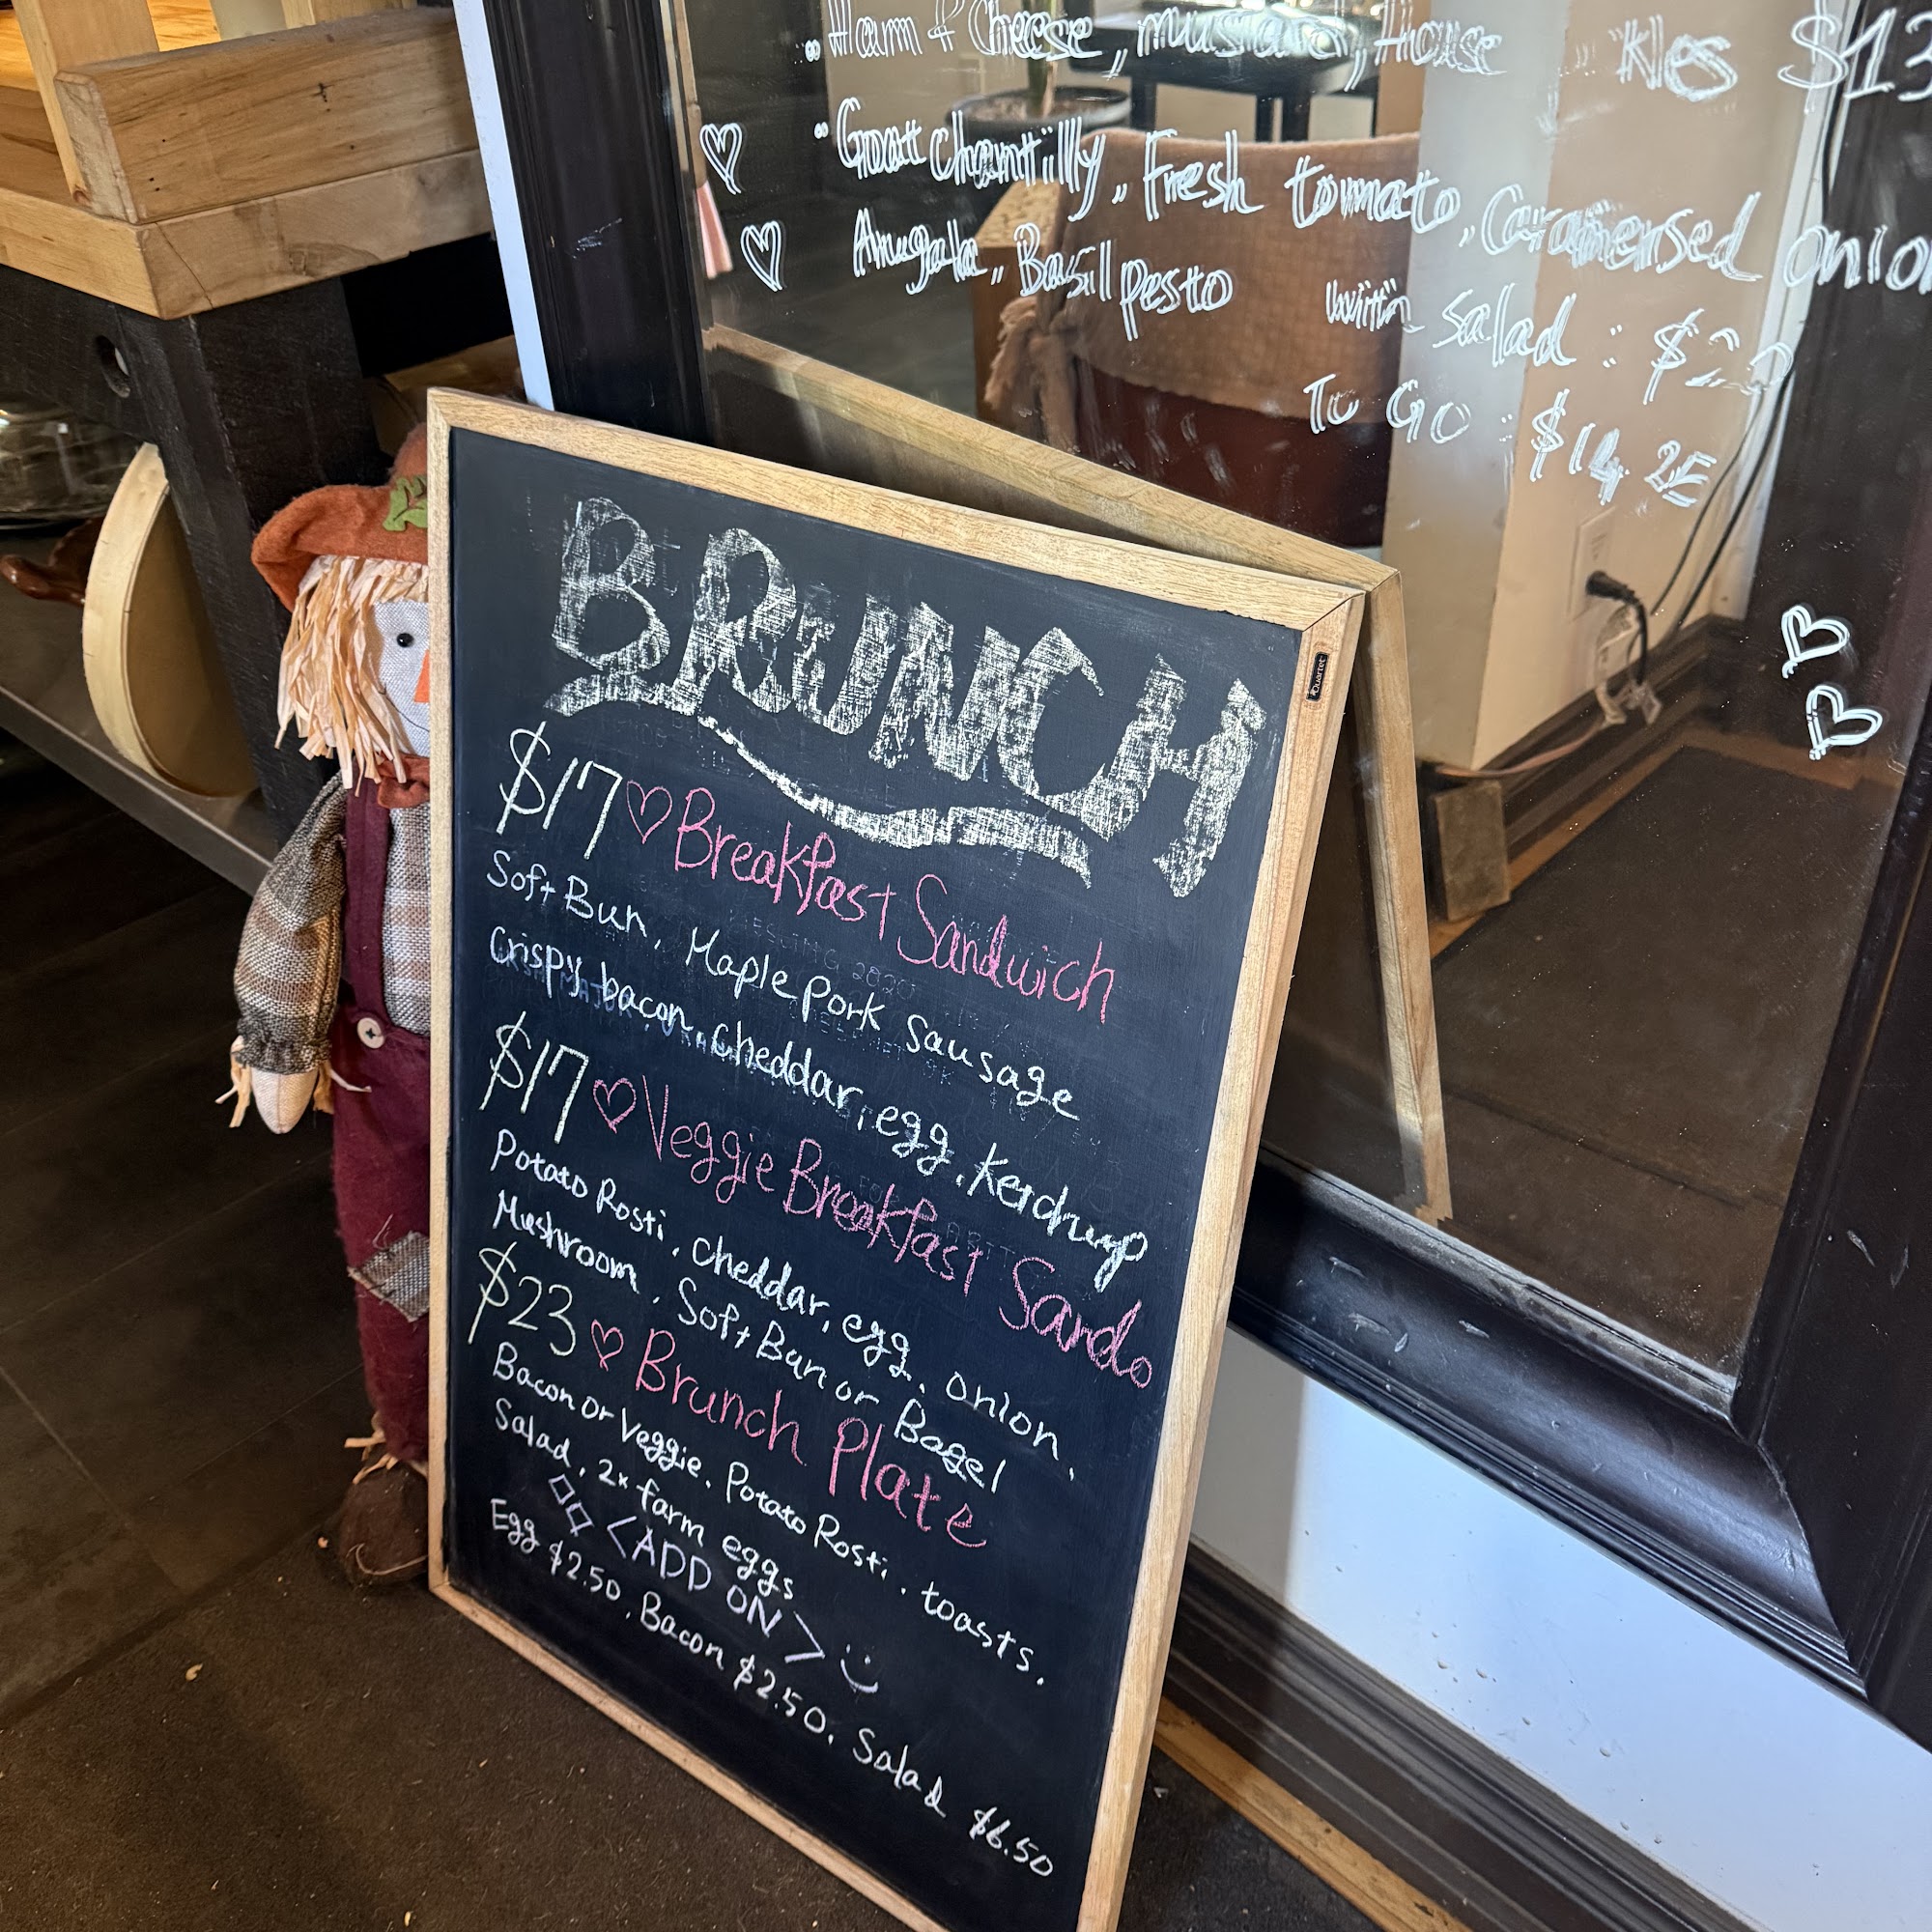 Ham & Cheese, mustard, House kles $13
Goat chantilly, Fresh tomato, Caramersed onion
Arugala, Basil pesto with salad : $
TO GO : $14.25
BRUNCH
Quartet
$17 ♡ Breakfast Sandwich
Soft Bun, Maple pork sausage
Crispy bacon, cheddar, egg, ketchup
$17 ♡ Veggie Breakfast Sando
Potato Rosti, cheddar, egg, onion,
Mushroom, Soft Bun or Bagel
$23 ♡ Brunch Plate
Bacon or Veggie, Potato Rosti, toasts,
Salad, 2x farm eggs
<ADD ON>
Egg $2.50, Bacon $2.50, Salad $6.50